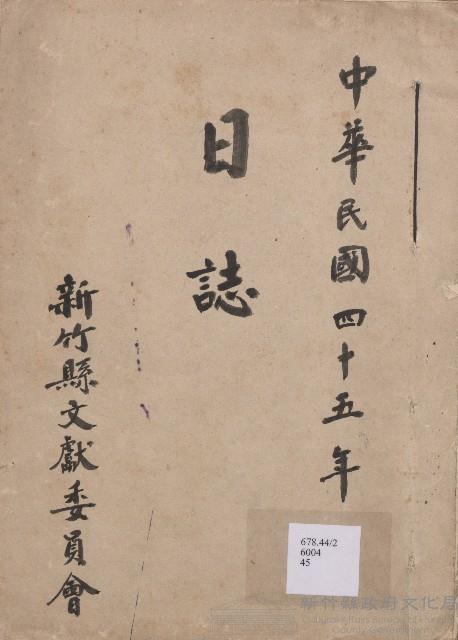 中華民國四十五年
日誌
新竹縣文獻委員會
678.44/2
6004
45
新竹縣政府文化局